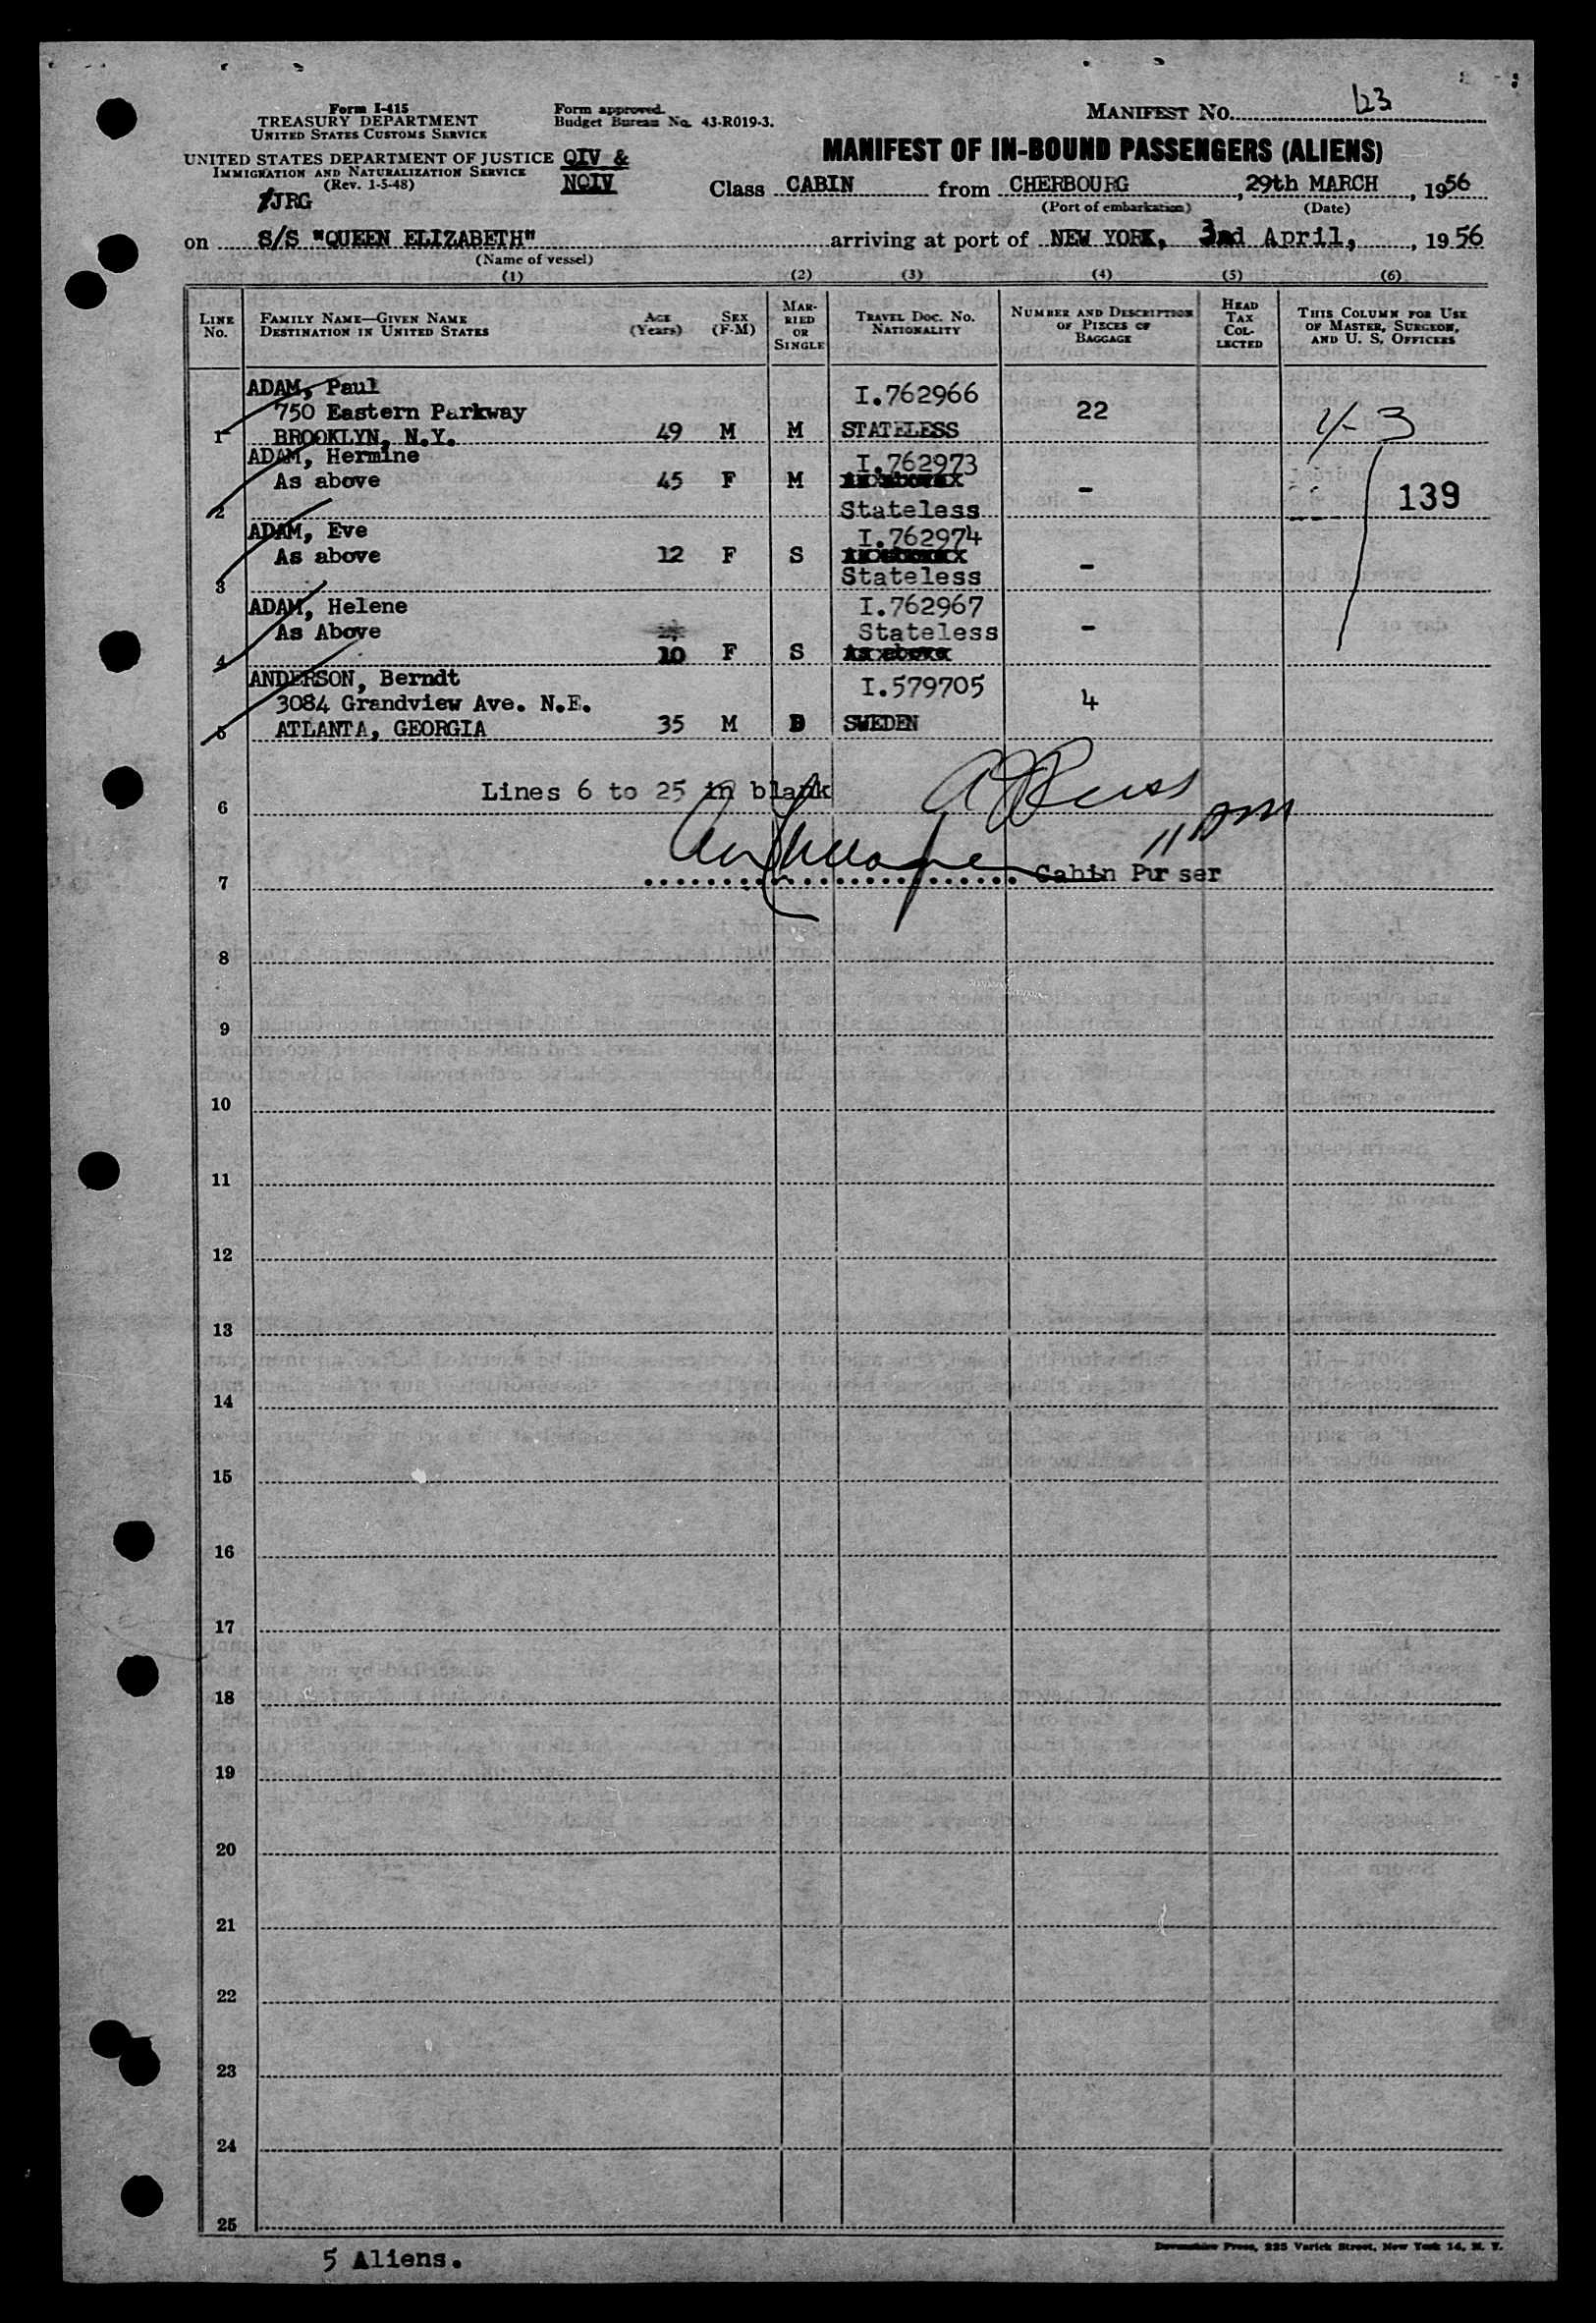 Form I-415
TREASURY DEPARTMENT
UNITED STATES CUSTOMS SERVICE
Form approved.
Budget Bureau No. 43-R019-3.
MANIFEST NO. 123
UNITED STATES DEPARTMENT OF JUSTICE
IMMIGRATION AND NATURALIZATION SERVICE
(Rev. 1-5-48)
QIV &
NQIV
JRG
MANIFEST OF IN-BOUND PASSENGERS (ALIENS)
Class CABIN from CHERBOURG, 29th MARCH, 1956
(Port of embarkation) (Date)
on S/S "QUEEN ELIZABETH" arriving at port of NEW YORK, 3rd April, 1956
(Name of vessel)
(1) (2) (3) (4) (5) (6)
LINE NO. FAMILY NAME—GIVEN NAME DESTINATION IN UNITED STATES AGE (Years) SEX (F-M) MARRIED OR SINGLE TRAVEL DOC. NO. NATIONALITY NUMBER AND DESCRIPTION OF PIECES OF BAGGAGE HEAD TAX COLLECTED THIS COLUMN FOR USE OF MASTER, SURGEON, AND U. S. OFFICERS
ADAM, Paul I.762966
750 Eastern Parkway 22
1 BROOKLYN, N.Y. 49 M M STATELESS 4-3
ADAM, Hermine I.762973
As above 45 F M -
2 Stateless 139
ADAM, Eve I.762974
As above 12 F S
3 Stateless -
ADAM, Helene I.762967
As Above Stateless -
4 10 F S
ANDERSON, Berndt I.579705
3084 Grandview Ave. N.E. 4
5 ATLANTA, GEORGIA 35 M D SWEDEN
Lines 6 to 25 in blank
6
7 Cabin Purser
8
9
10
11
12
13
14
15
16
17
18
19
20
21
22
23
24
25
5 Aliens.
Devonshire Press, 225 Varick Street, New York 14, N. Y.